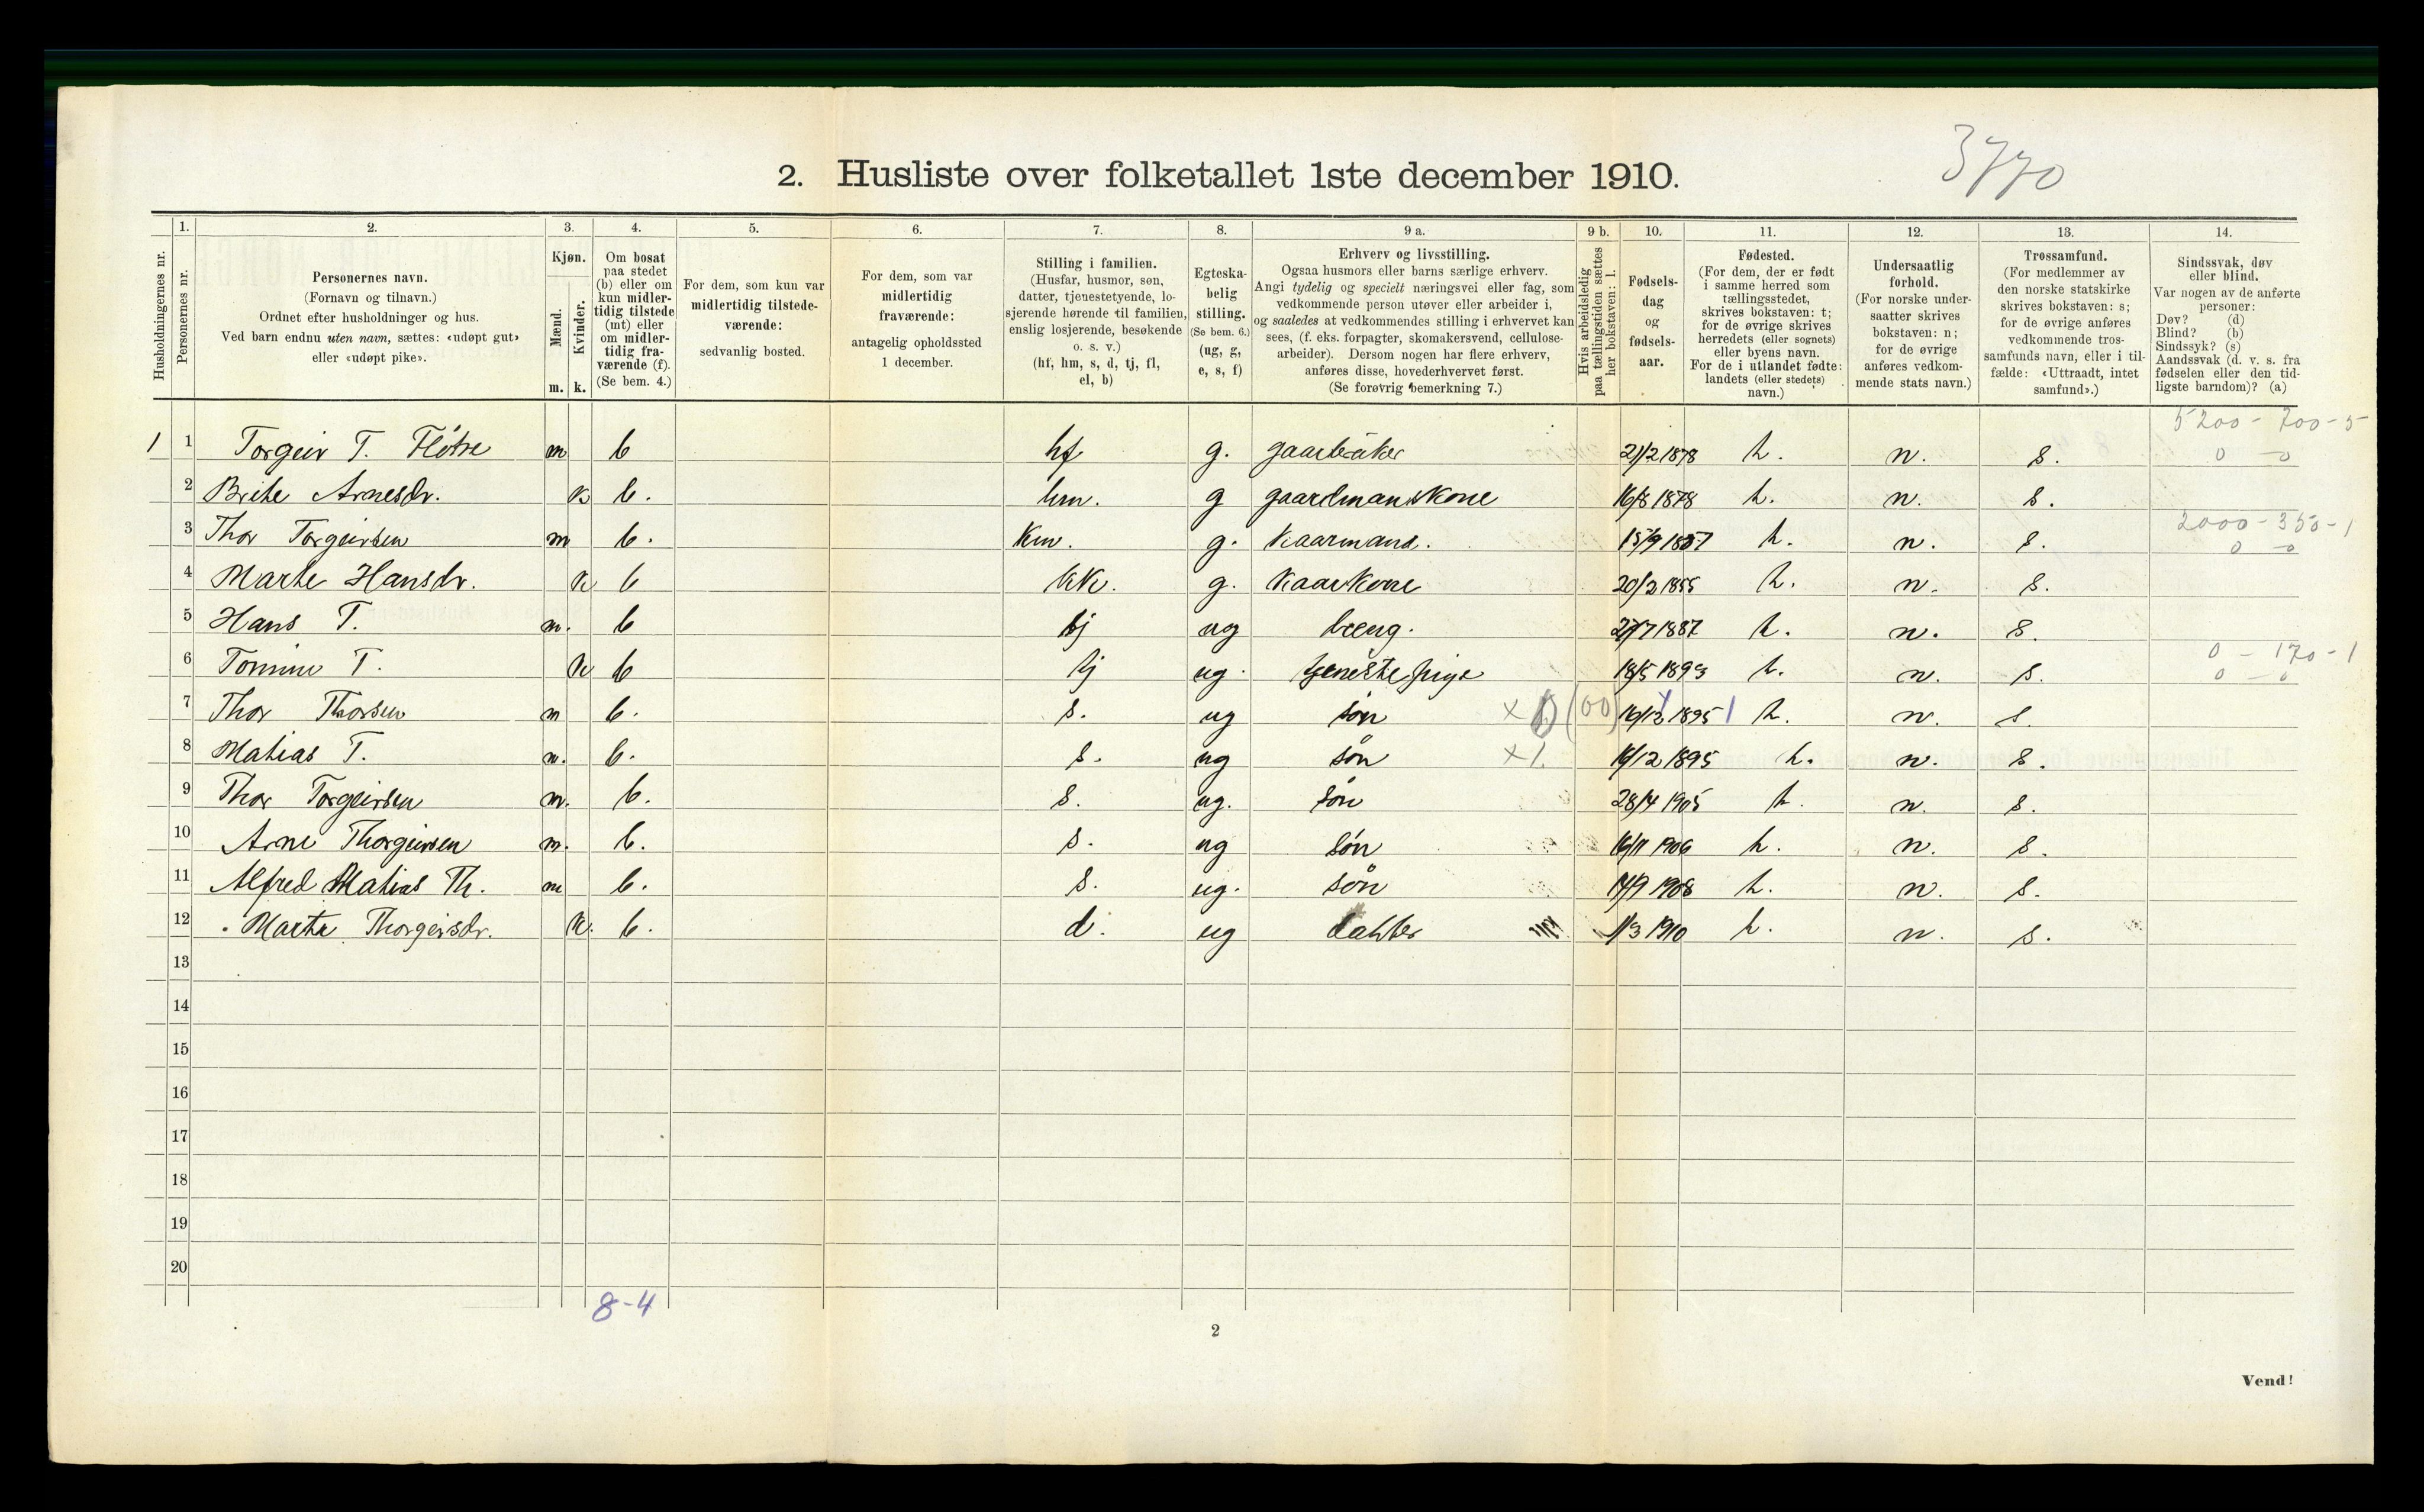 2. Husliste over folketallet 1ste december 1910.
3770
Husholdningernes nr.
1. Personernes nr.
2. Personernes navn. (Fornavn og tilnavn.) Ordnet efter husholdninger og hus. Ved barn endnu uten navn, sættes: «udøpt gut» eller «udøpt pike».
3. Kjøn. Mænd. Kvinder. m. k.
4. Om bosat paa stedet (b) eller om kun midlertidig tilstede (mt) eller om midlertidig fraværende (f). (Se bem. 4.)
5. For dem, som kun var midlertidig tilstedeværende: sedvanlig bosted.
6. For dem, som var midlertidig fraværende: antagelig opholdssted 1 december.
7. Stilling i familien. (Husfar, husmor, søn, datter, tjenestetyende, losjerende hørende til familien, enslig losjerende, besøkende o. s. v.) (hf, hm, s, d, tj, fl, el, b)
8. Egteskabelig stilling. (Se bem. 6.) (ug, g, e, s, f)
9 a. Erhverv og livsstilling. Ogsaa husmors eller barns særlige erhverv. Angi tydelig og specielt næringsvei eller fag, som vedkommende person utøver eller arbeider i, og saaledes at vedkommendes stilling i erhvervet kan sees, (f. eks. forpagter, skomakersvend, cellulosearbeider). Dersom nogen har flere erhverv, anføres disse, hovederhvervet først. (Se forøvrig bemerkning 7.)
9 b. Hvis arbeidsledig paa tællingstiden sættes her bokstaven: l.
10. Fødselsdag og fødselsaar.
11. Fødested. (For dem, der er født i samme herred som tællingsstedet, skrives bokstaven: t; for de øvrige skrives herredets (eller sognets) eller byens navn. For de i utlandet fødte: landets (eller stedets) navn.)
12. Undersaatlig forhold. (For norske undersaatter skrives bokstaven: n; for de øvrige anføres vedkommende stats navn.)
13. Trossamfund. (For medlemmer av den norske statskirke skrives bokstaven: s; for de øvrige anføres vedkommende trossamfunds navn, eller i tilfælde: «Uttraadt, intet samfund».)
14. Sindssvak, døv eller blind. Var nogen av de anførte personer: Døv? (d) Blind? (b) Sindssyk? (s) Aandssvak (d. v. s. fra fødselen eller den tidligste barndom)? (a)
5200 - 700 - 5
1 1 Torgeir T. Fløtre m b hf g. 21/2 1878 t. n. s. 0 - 0
2 Brite Arnesdr. k b. hm. g gaardmandskone 16/8 1878 t. n. s.
2000 - 350 - 1
3 Thor Torgeirsen m b. km. g. kaarmand. 15/9 1857 t. n. s. 0 - 0
4 Marte Hansdr. k b kk. g. kaarkone 20/2 1855 t. n. s.
5 Hans T. m. b tj ug dreng. 27/7 1887 t. n. s.
0 - 170 - 1
6 T. k b tj ug. tjenestepige 18/5 1893 t. n. s. 0 - 0
7 Thor Thorsen m b. s. ug søn x (00) 16/12 1895 t. n. s.
8 Matias T. m. b. s. ug søn x 1. 16/12 1895 t. n. s.
9 Thor Torgeirsen m. b. s. ug. søn 28/4 1905 t. n. s.
10 Arne Thorgeirsen m. b. s. ug søn 16/11 1906 t. n. s.
11 Alfred Matias Th. m b. s. ug. søn 14/9 1908 t. n. s.
12 Marta Thorgeirsdr. k. b. d. ug dahter 1/3 1910 t. n. s.
13
14
15
16
17
18
19
20
8-4
2
Vend!